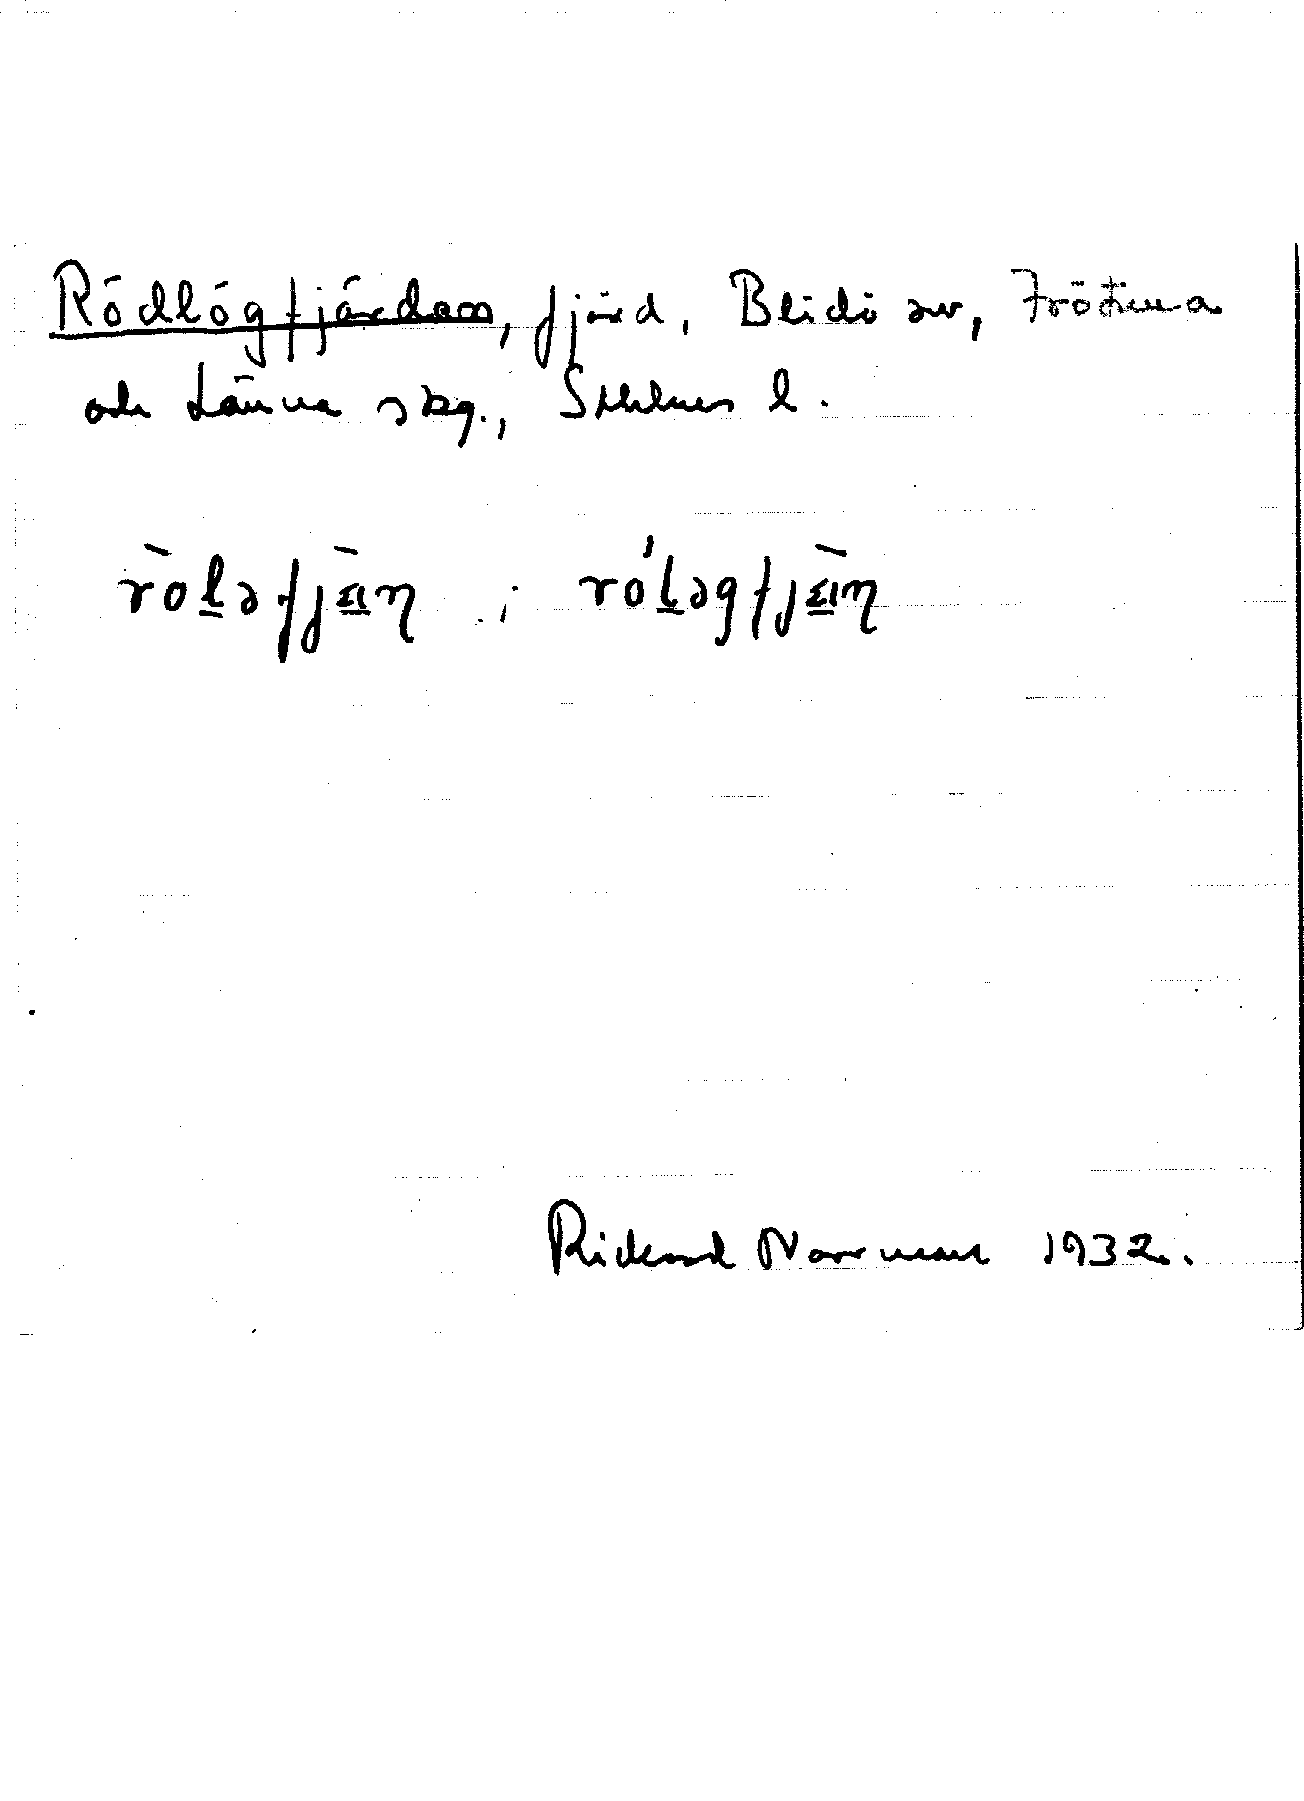 Rödlögfjärden, fjärd, Blidö sn, Frötuna
och Länna skg., Sthlms l.
ròlǝfjæ̀ṇ ; rólǝgfjæ̀ṇ
Rickard Norrman 1932.